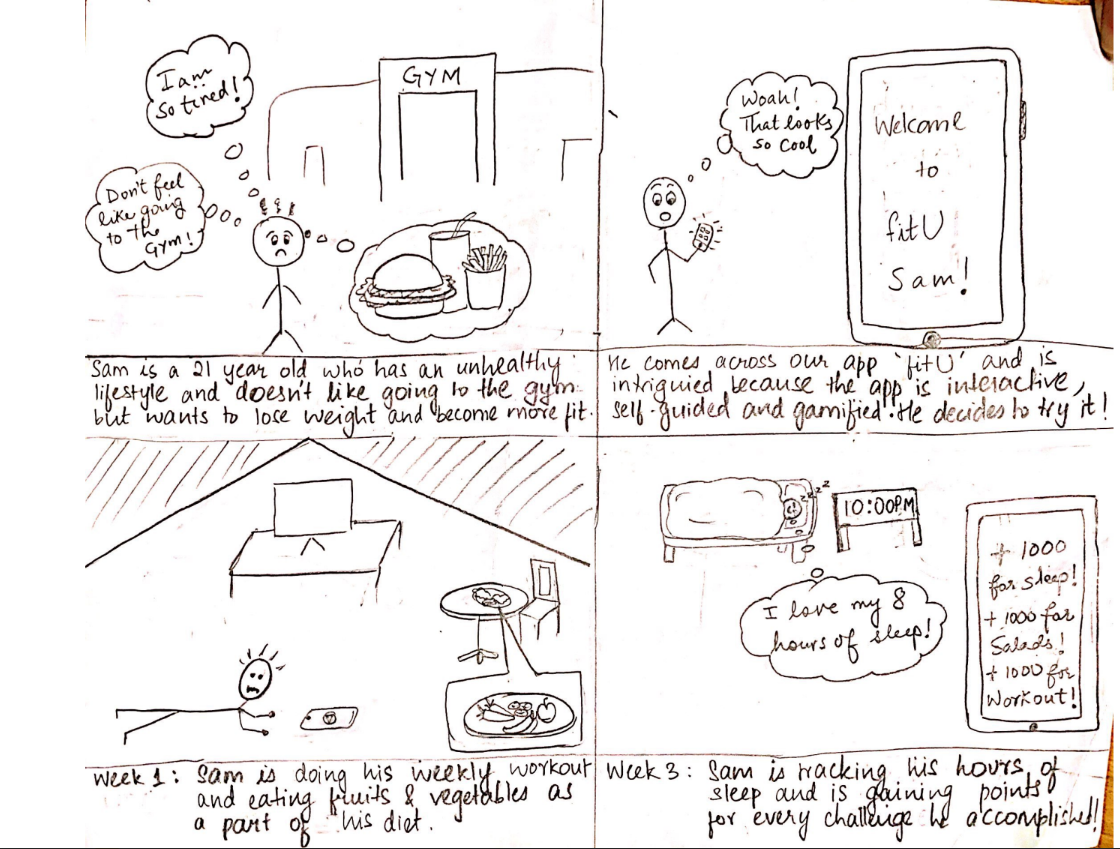 I am
so tired!
GYM
Don't feel
like going
to the
Gym!
Sam is a 21 year old who has an unhealthy
lifestyle and doesn't like going to the gym
but wants to lose weight and become more fit.
Woah!
That looks
so cool
Welcome
to
fitU
Sam!
He comes across our app 'fitU' and is
intriguied because the app is interactive,
self-guided and gamified. He decides to try it!
Week 1: Sam is doing his weekly workout
and eating fruits & vegetables as
a part of his diet.
zzzz
10:00PM
I love my 8
hours of sleep!
+ 1000
for sleep!
+ 1000 for
Salads!
+ 1000 for
Workout!
Week 3: Sam is tracking his hours of
sleep and is gaining points
for every challenge he accomplished!